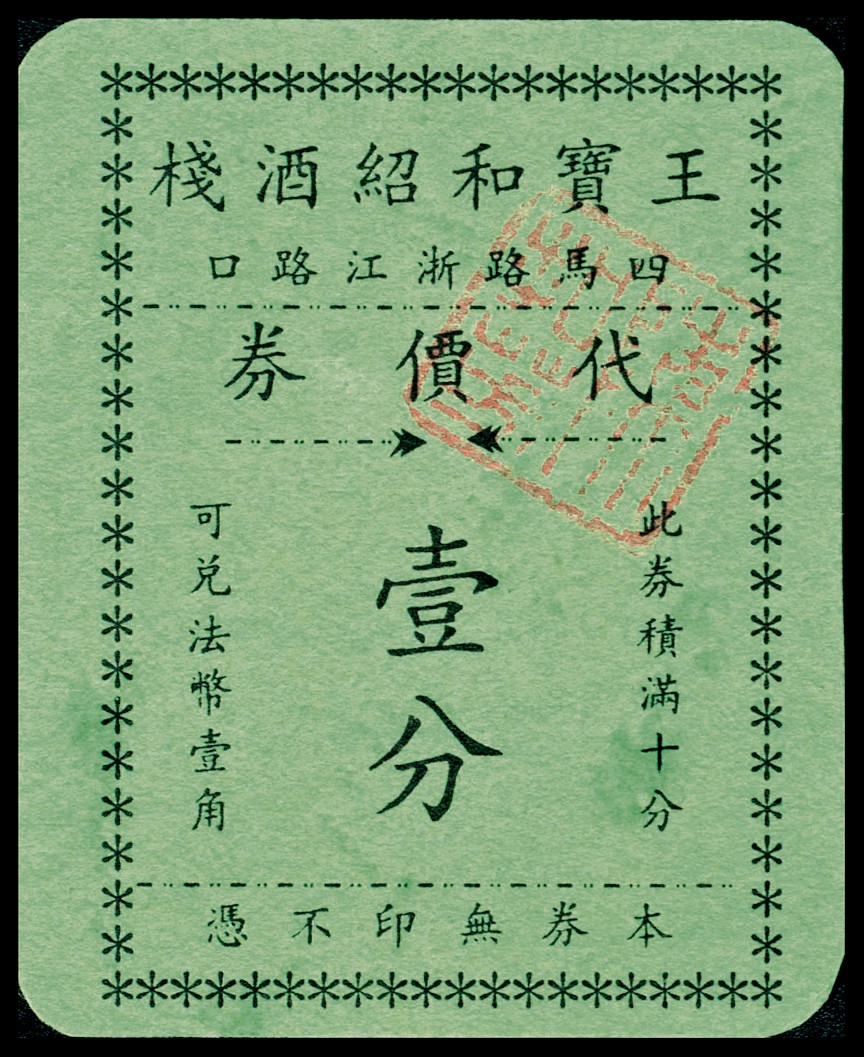 王寶和紹酒棧
四馬路浙江路口
代價券
此券積滿十分
壹分
可兑法幣壹角
本券無印不憑